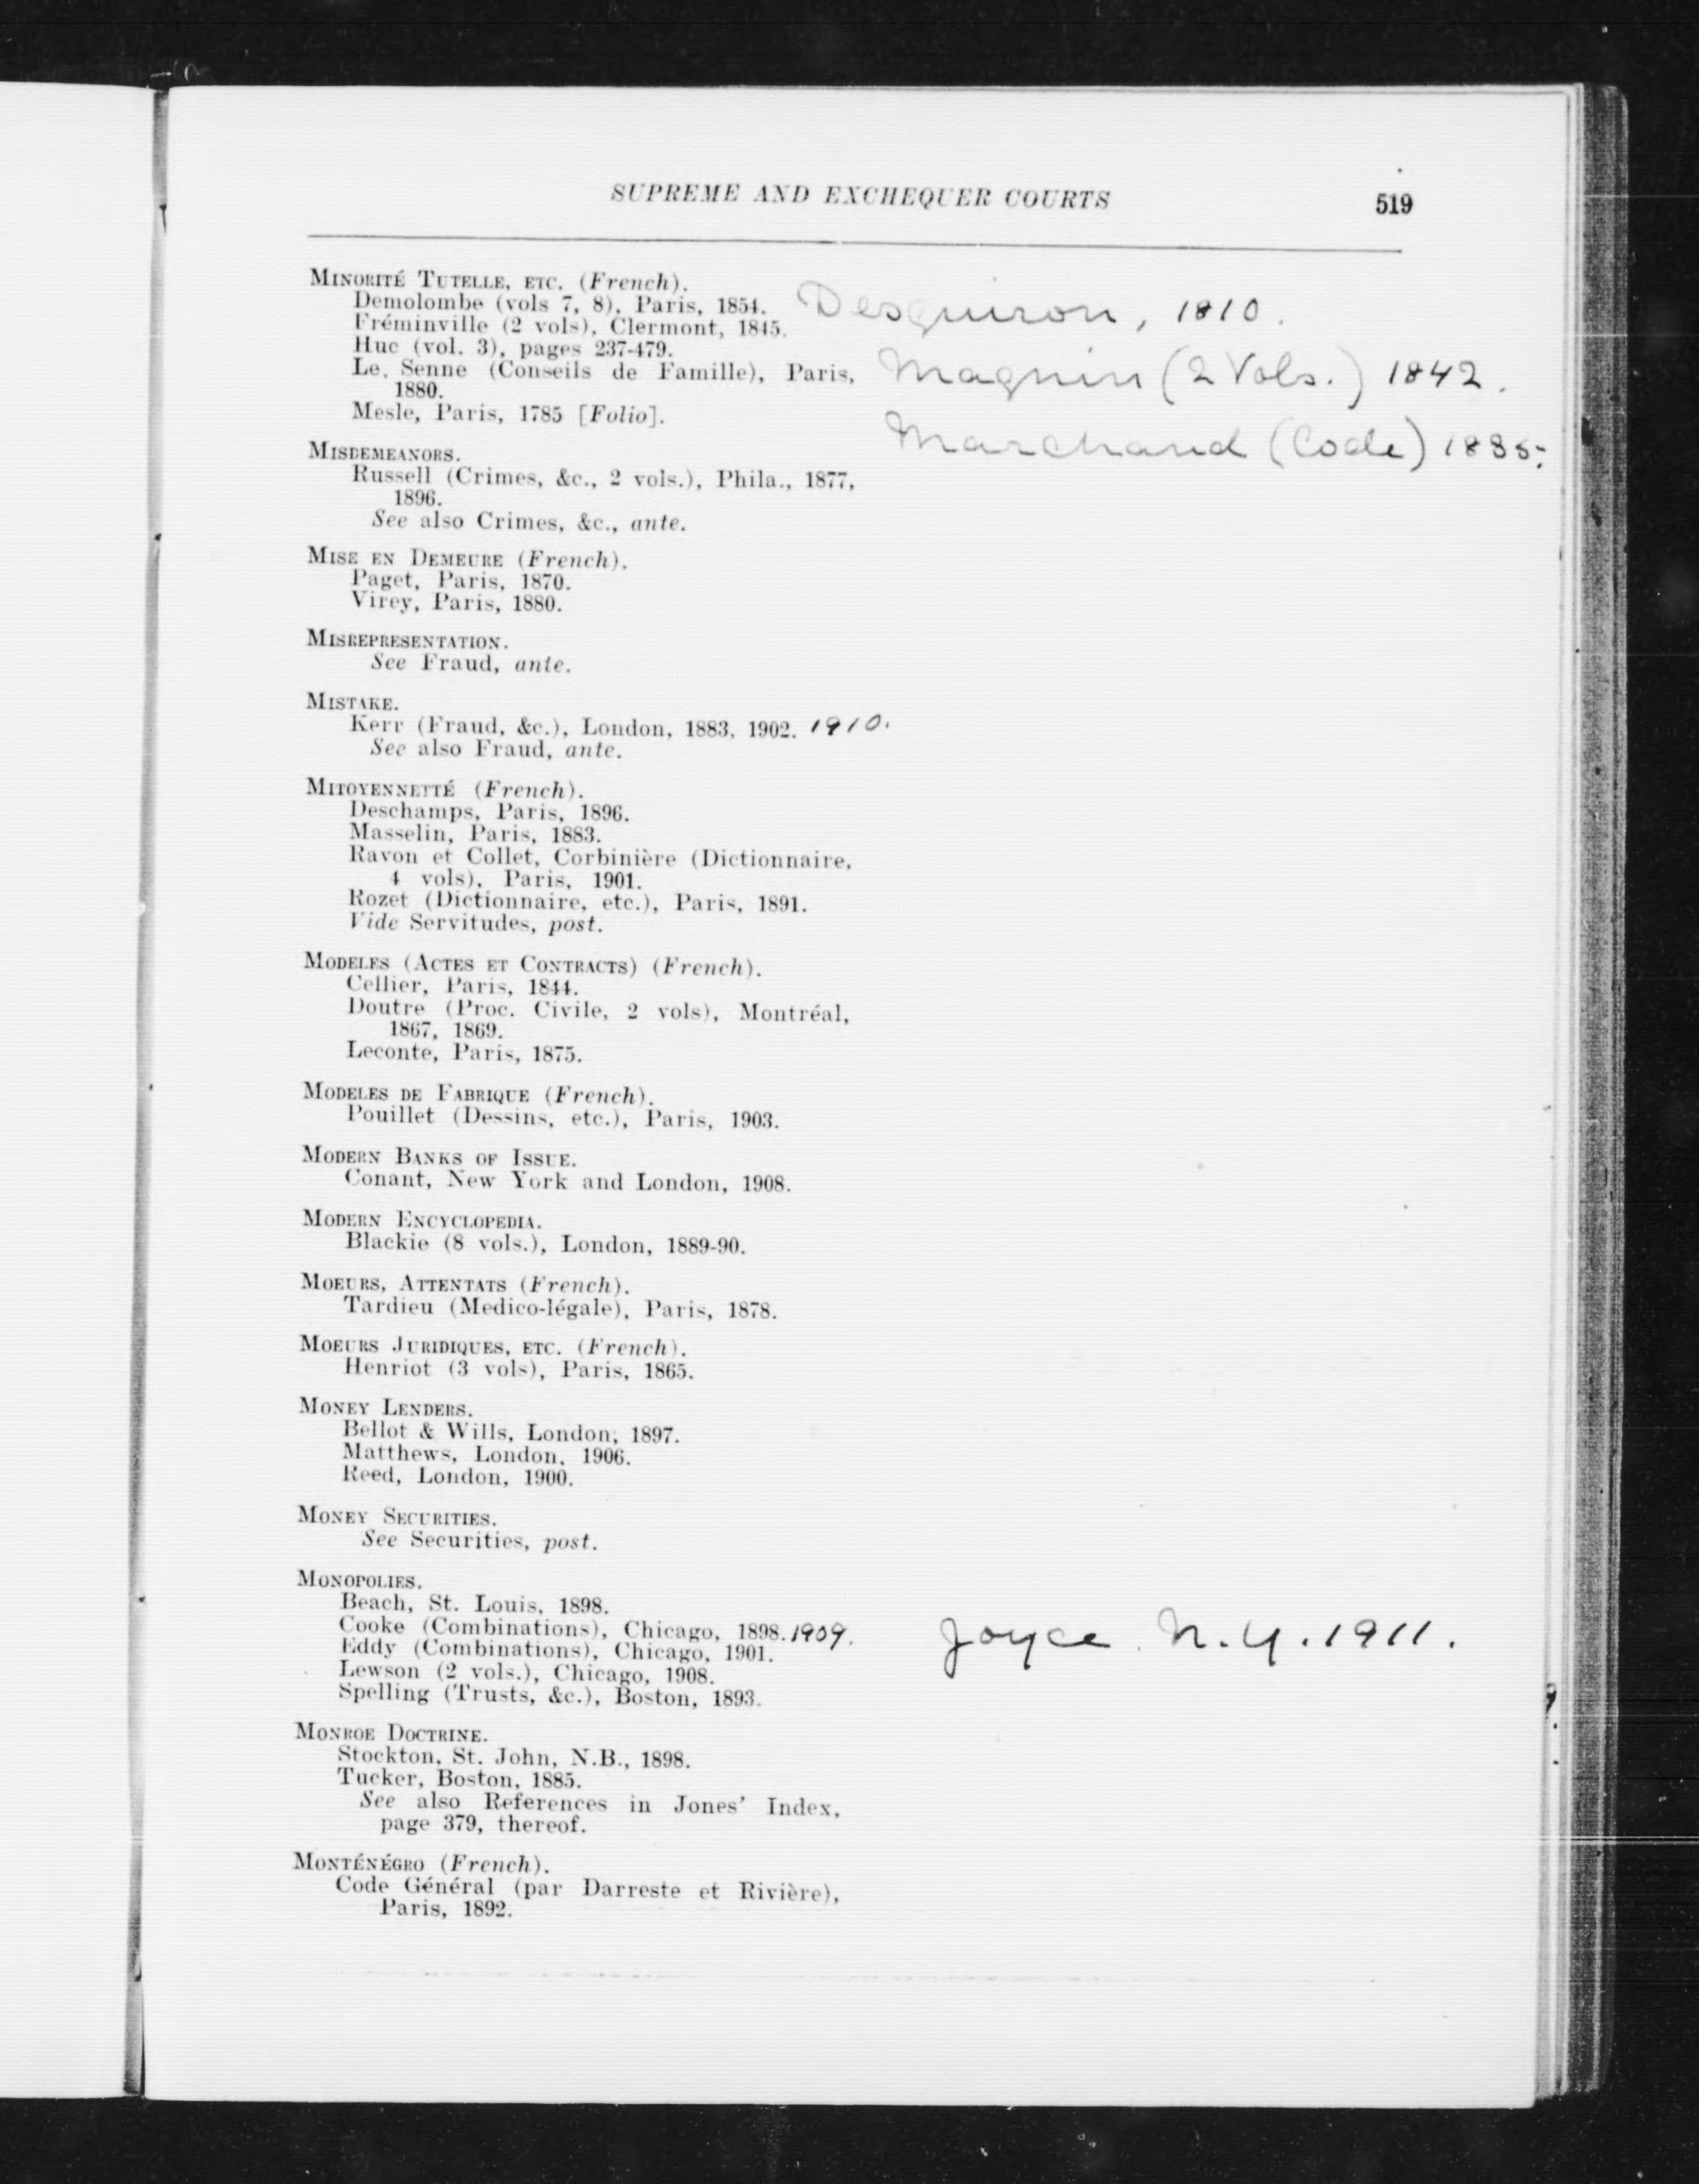 SUPREME AND EXCHEQUER COURTS 519
MINORITÉ TUTELLE, ETC. (French).
Demolombe (vols 7, 8), Paris, 1854.
Desquiron, 1810.
Fréminville (2 vols), Clermont, 1845.
Huc (vol. 3), pages 237-479.
Le. Senne (Conseils de Famille), Paris,
1880.
Magnin (2 Vols.) 1842.
Mesle, Paris, 1785 [Folio].
Marchand (Code) 1885.
MISDEMEANORS.
Russell (Crimes, &c., 2 vols.), Phila., 1877,
1896.
See also Crimes, &c., ante.
MISE EN DEMEURE (French).
Paget, Paris, 1870.
Virey, Paris, 1880.
MISREPRESENTATION.
See Fraud, ante.
MISTAKE.
Kerr (Fraud, &c.), London, 1883, 1902. 1910.
See also Fraud, ante.
MITOYENNETTÉ (French).
Deschamps, Paris, 1896.
Masselin, Paris, 1883.
Ravon et Collet, Corbinière (Dictionnaire,
4 vols), Paris, 1901.
Rozet (Dictionnaire, etc.), Paris, 1891.
Vide Servitudes, post.
MODELES (ACTES ET CONTRACTS) (French).
Cellier, Paris, 1844.
Doutre (Proc. Civile, 2 vols), Montréal,
1867, 1869.
Leconte, Paris, 1875.
MODELES DE FABRIQUE (French).
Pouillet (Dessins, etc.), Paris, 1903.
MODERN BANKS OF ISSUE.
Conant, New York and London, 1908.
MODERN ENCYCLOPEDIA.
Blackie (8 vols.), London, 1889-90.
MOEURS, ATTENTATS (French).
Tardieu (Medico-légale), Paris, 1878.
MOEURS JURIDIQUES, ETC. (French).
Henriot (3 vols), Paris, 1865.
MONEY LENDERS.
Bellot & Wills, London, 1897.
Matthews, London, 1906.
Reed, London, 1900.
MONEY SECURITIES.
See Securities, post.
MONOPOLIES.
Beach, St. Louis, 1898.
Cooke (Combinations), Chicago, 1898. 1909.
Joyce N.Y. 1911.
Eddy (Combinations), Chicago, 1901.
Lewson (2 vols.), Chicago, 1908.
Spelling (Trusts, &c.), Boston, 1893.
MONROE DOCTRINE.
Stockton, St. John, N.B., 1898.
Tucker, Boston, 1885.
See also References in Jones' Index,
page 379, thereof.
MONTÉNÉGRO (French).
Code Général (par Darreste et Rivière),
Paris, 1892.